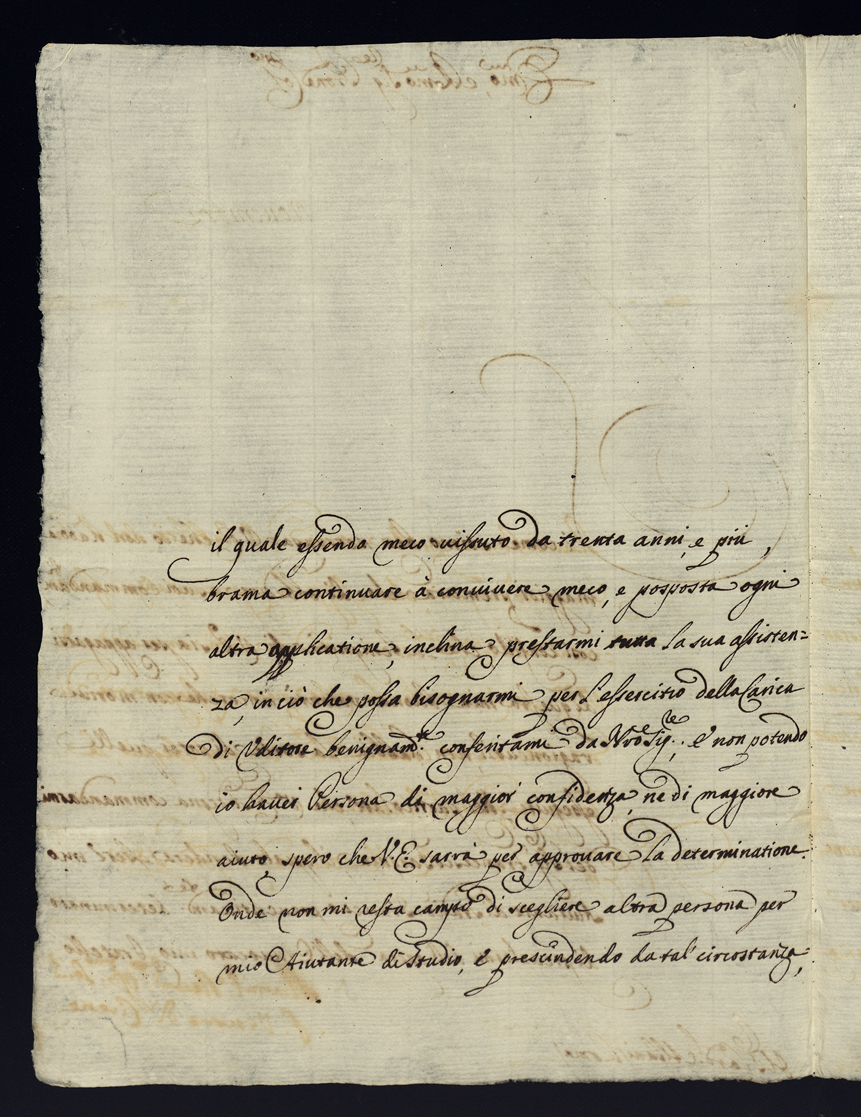 il quale essendo meco uissuto da trenta anni, e più,
brama continuare à conuiuere meco, e posposta ogni
altra applicatione, inclina prestarmi tutta la sua assisten=
za, in ciò che possa bisognarmi per l'essercitio della Carica
di Vditore benignam.te conferitami da N'ro Sig.re, e' non potendo
io hauer Persona di maggior confidenza, ne di maggiore
aiuto, spero che V. E. sarrà per approuare la determinatione.
Onde non mi resta campo di scegliere altra persona per
mio Aiutante di Studio, e' prescindendo da tal' circostanza,